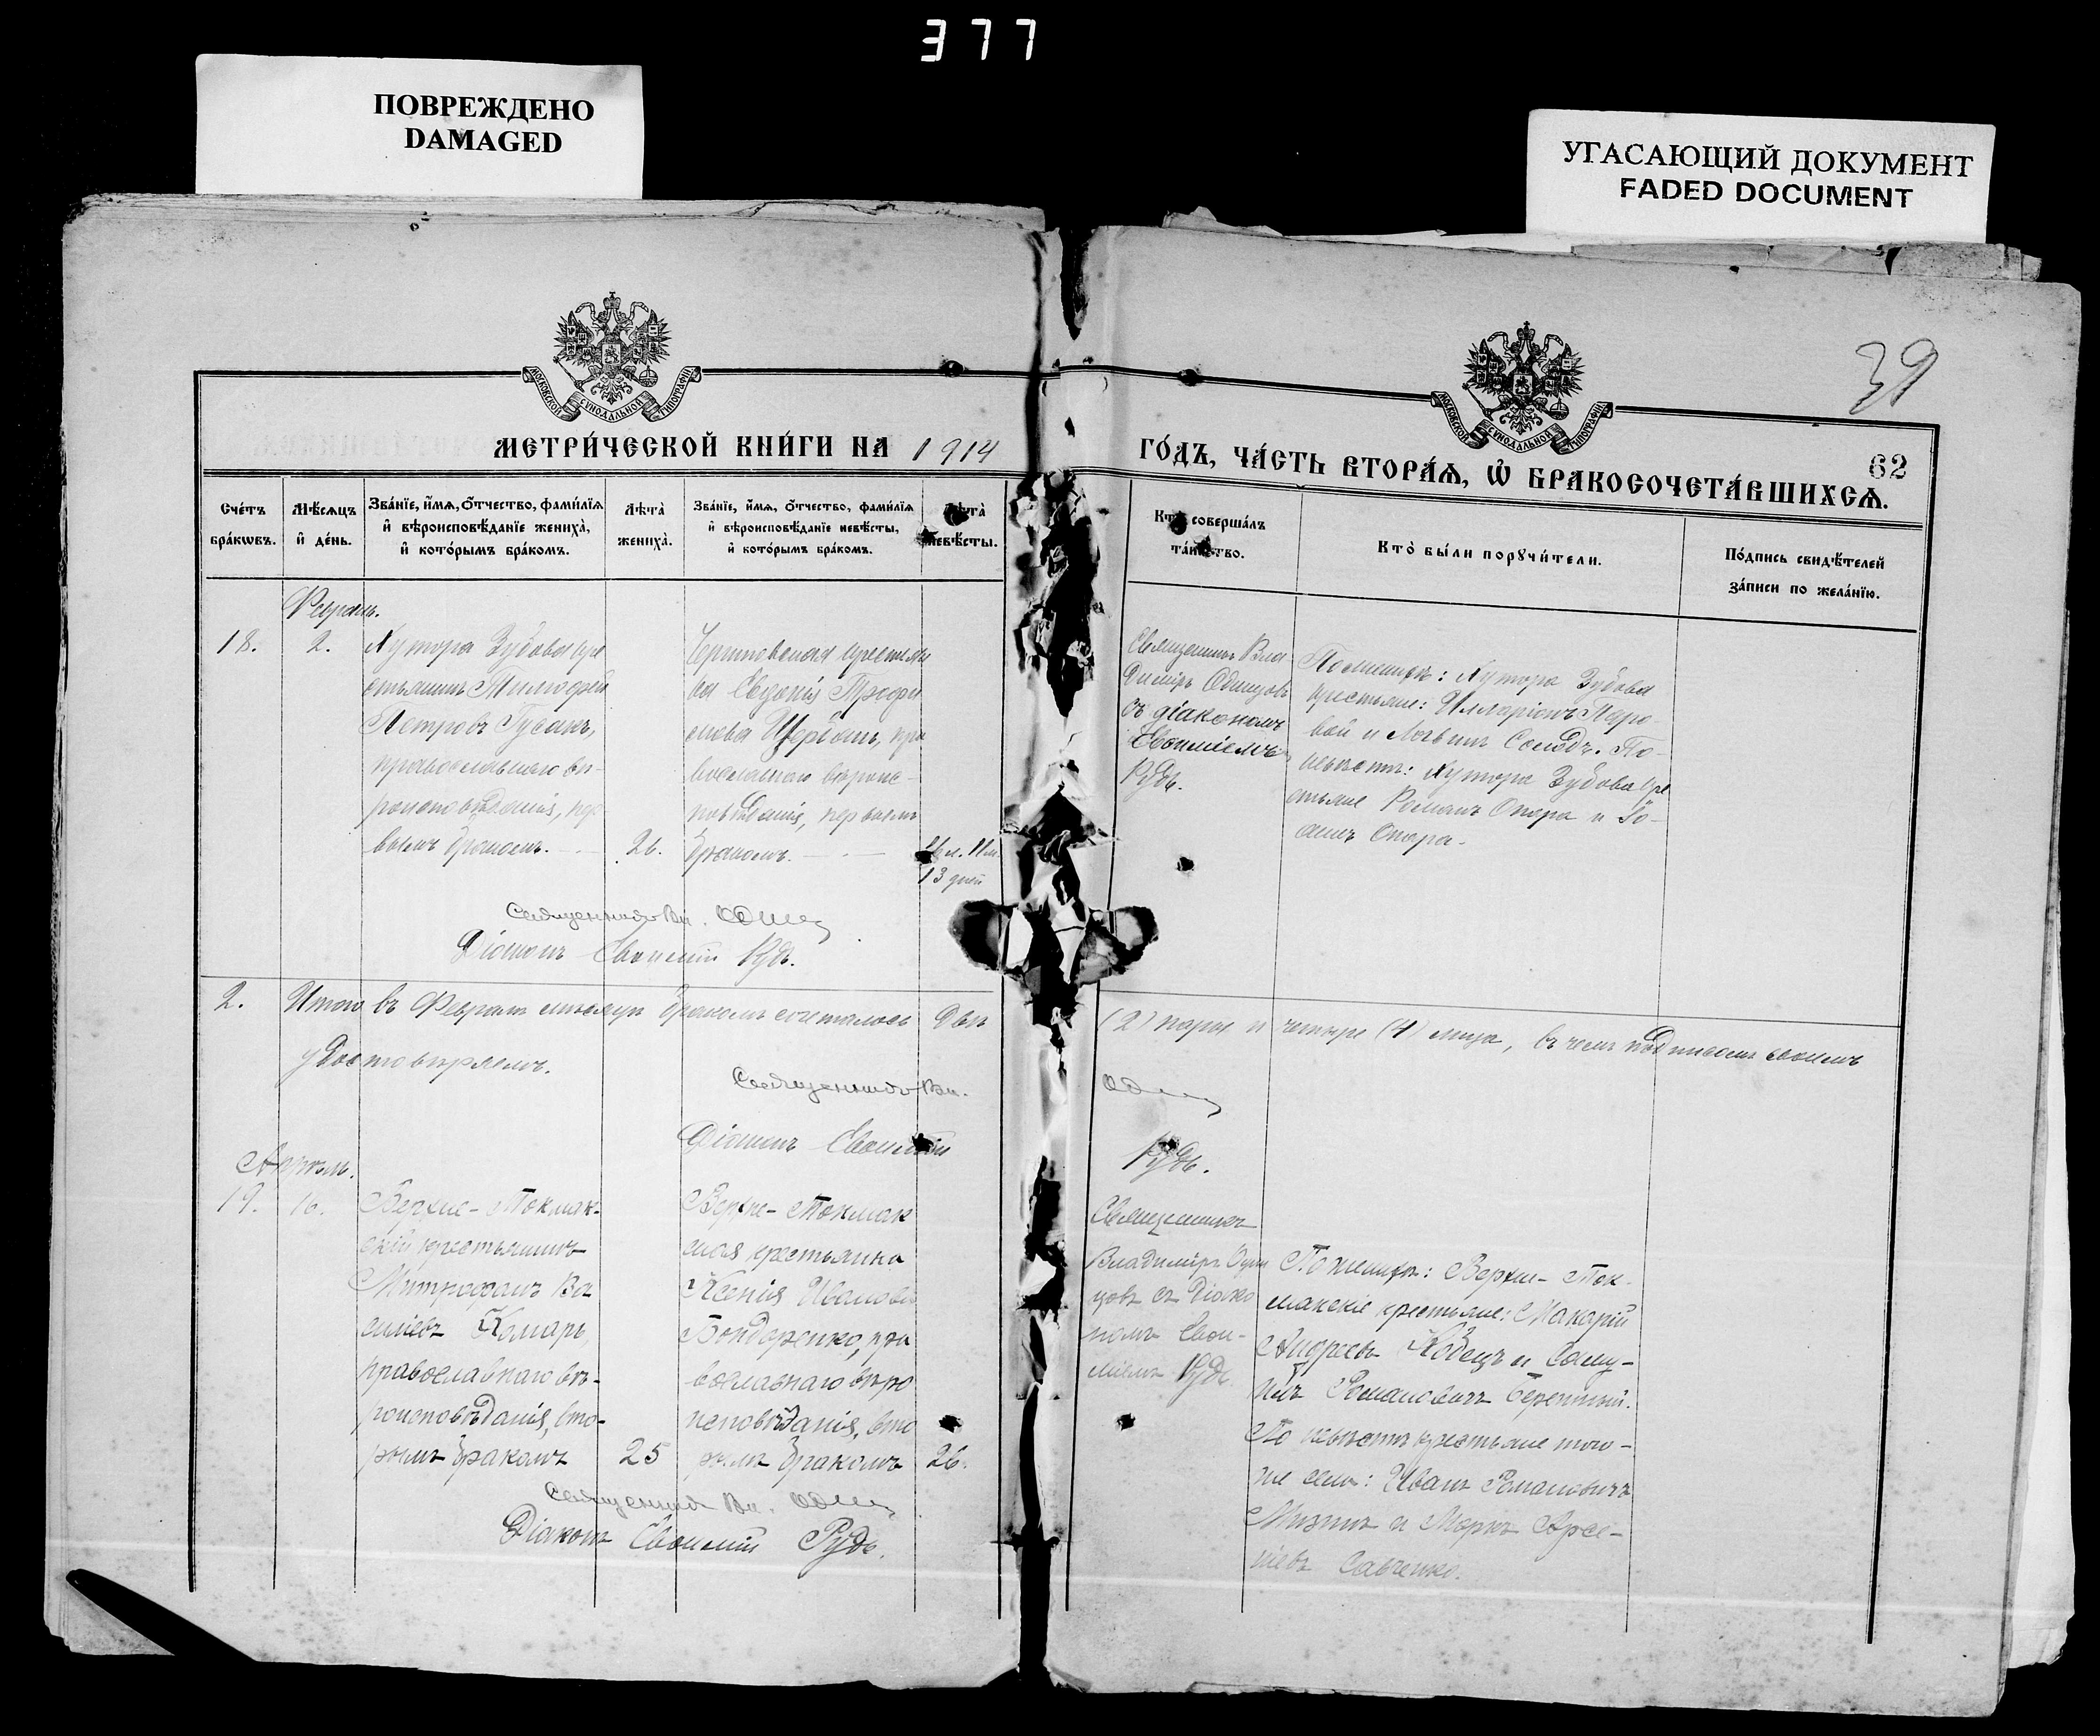 377
ПОВРЕЖДЕНО
DAMAGED
УГАСАЮЩИЙ ДОКУМЕНТ
FADED DOCUMENT
39
МОСКОВСКОЙ СѴНОДАЛЬНОЙ ТИПОГРАФІИ
МОСКОВСКОЙ СѴНОДАЛЬНОЙ ТИПОГРАФІИ
МЕТРИ́ЧЕСКОЙ КНИ́ГИ НА 1914
ГО́ДЪ, ЧА́СТЬ ВТОРА́Я, Ѡ БРАКОСОЧЕТА́ВШИХСЯ.
62
Сче́тъ
бра́кѡвъ.
Мѣ́сяцъ
и де́нь.
Зва́ніе, и́мя, ѻ́тчество, фами́лія
и вѣроисповѣ́даніе жениха̀,
и кото́рымъ бра́комъ.
Лѣта̀
жениха̀.
Зва́ніе, и́мя, ѻ́тчество, фами́лія
и вѣроисповѣ́даніе невѣ́сты,
и кото́рымъ бра́комъ.
Лѣта̀
невѣ́сты.
Кто̀ соверша́лъ
та́инство.
Кто̀ бы́ли порꙋчи́тели.
По́дпись свидѣ́телей
за́писи по жела́нію.
Февраль.
18.
2.
Хутора Зубова кре
стьянинъ Тимофей
Петровъ Гусакъ,
православнаго вѣ-
роисповѣданія, пер
вымъ бракомъ.
26.
крестьян
ка Евдокія Трофи
мова пра
вославнаго вѣроис-
повѣданія, первымъ
бракомъ.
11 м.
13 дней
Священникъ Вла
диміръ Одинцовъ
съ діакономъ
Евфиміемъ
Рудь.
По женихѣ: Хутора Зубова
крестьяне: Илларіонъ
и По
невѣстѣ: Хутора Зубова кре
стьяне Романъ Опара и Іо-
аннъ Опара.
Священникъ Вл. Один
Діаконъ Евфимій Рудь.
2. Итого въ Февралѣ мѣсяцѣ бракомъ сочеталось двѣ
(2) пары и четыре (4) лица, въ чемъ подписомъ своимъ
удостовѣряемъ.
Священникъ Вл. Один
Діаконъ Евфимій Рудь.
Апрѣль.
19.
16.
Верхне-Токмак-
скій крестьянинъ
Митрофанъ Ва
силіевъ Комаръ,
православнаго вѣ-
роисповѣданія, вто-
рымъ бракомъ
25
Верхне-Токмак
ская крестьянка
Ксенія Иванова
Бондаренко, пра
вославнаго вѣро
исповѣданія, вто
рымъ бракомъ
26.
Священникъ
Владиміръ Один
цовъ съ Діако
номъ Евфи-
міемъ Рудь.
По женихѣ: Верхне-Ток-
макскіе крестьяне: Макарій
Андреевъ и Саму-
илъ Романовичъ
По невѣстѣ крестьяне того-
же села: Иванъ Романовичъ
Мизинъ и Маркъ Арсе-
ніевъ Савченко.
Священникъ Вл. Один
Діаконъ Евфимій Рудь.